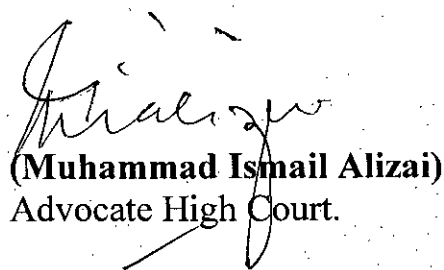 (Muhammad Ismail Alizai)
Advocate High Court.